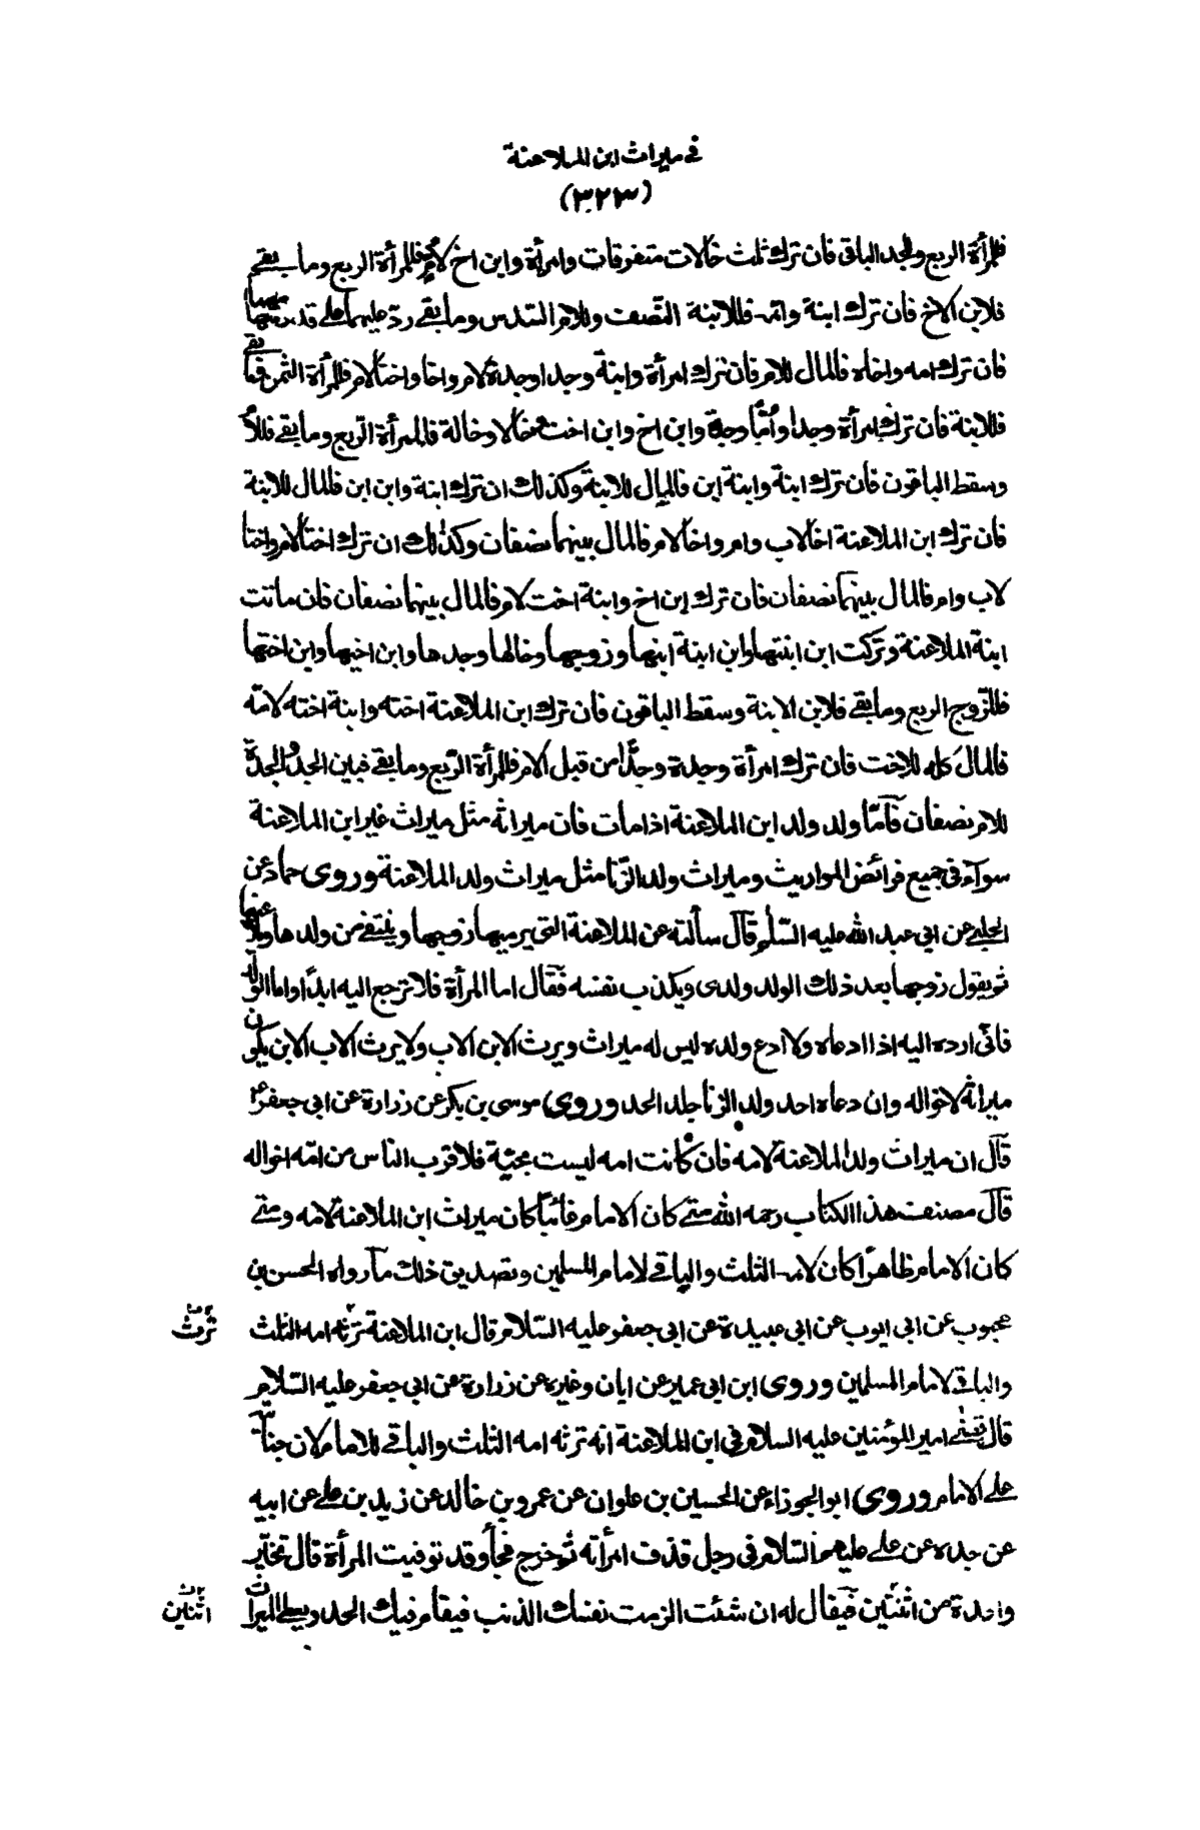 في ميراث ابن الملاعنة
(٣٢٣)
فللمرأة الربع وللجد الباقي فان ترك ثلث خالات متفرقات وامرأة وابن اخ لام فللمرأة الربع وما بقي
فلابن الاخ فان ترك ابنة وامه فللابنة النصف وللام السدس وما بقي رد عليهما على قدر سهامهما
فان ترك امه واخاه فالمال للام فان ترك امرأة وابنة وجدا وجدة لام واخا واختا لام فللمرأة الثمن وما بقي
فللابنة فان ترك امرأة وجدا وأمّا وجدة وابن اخ وابن اخت وخالا وخالة فللمرأة الربع وما بقي فللام
وسقط الباقون فان ترك ابنة وابنة ابن فالمال للابنة وكذلك ان ترك ابنة وابن ابن فالمال للابنة
فان ترك ابن الملاعنة اخا لاب وام واخا لام فالمال بينهما نصفان وكذلك ان ترك اختا لام واختا
لاب وام فالمال بينهما نصفان فان ترك ابن اخ وابنة اخت لام فالمال بينهما نصفان فان ماتت
ابنة الملاعنة وتركت ابن ابنتها وابن ابنة ابنها وزوجها وخالها وجدها وابن اخيها وابن اختها
فللزوج الربع وما بقي فلابن الابنة وسقط الباقون فان ترك ابن الملاعنة اخته وابنة اخته لامّه
فالمال كله للاخت فان ترك امرأة وجدة وجدًّا من قبل الام فللمرأة الرّبع وما بقي فبين الجد والجدة
للام نصفان فأمّا ولد ولد ابن الملاعنة اذا مات فان ميراثه مثل ميراث غير ابن الملاعنة
سوآء في جميع فرائض المواريث وميراث ولد الزّنا مثل ميراث ولد الملاعنة وروى حماد عن
الحلبي عن ابي عبد الله عليه السّلم قال سألته عن الملاعنة التي يرميها زوجها وينتفي من ولدها ويلاعنها
ثم يقول زوجها بعد ذلك الولد ولدي ويكذب نفسه فقال اما المرأة فلا ترجع اليه ابدًا واما الولد
فانّي ارده اليه اذا ادعاه ولا ادع ولده ليس له ميراث ويرث الابن الاب ولا يرث الاب الابن يكون
ميراثه لاخواله وان دعاه احد ولد الزنا جلد الحد وروى موسى بن بكر عن زرارة عن ابي جعفر ع
قال ان ميراث ولد الملاعنة لامه فان كانت امه ليست بحيّة فلاقرب الناس من امّه اخواله
قال مصنف هذا الكتاب رحمه الله متى كان الامام غائبًا كان ميراث ابن الملاعنة لامه ومتى
كان الامام ظاهرًا كان لامه الثلث والباقي لامام المسلمين وتصديق ذلك ما رواه الحسن بن
محبوب عن ابي ايوب عن ابي عبيدة عن ابي جعفر عليه السّلام قال ابن الملاعنة ترثه امه الثلث
ترث
والباقي لامام المسلمين وروى ابن ابي عمير عن ابان وغيره عن زرارة عن ابي جعفر عليه السّلام
قال قضى امير المؤمنين عليه السلام في ابن الملاعنة انه ترثه امه الثلث والباقي للامام لان جنايته
على الامام وروى ابو الجوزاء عن الحسين بن علوان عن عمرو بن خالد عن زيد بن علي عن ابيه
عن جده عن علي عليهم السّلام في رجل قذف امرأته ثم خرج فجآء وقد توفيت المرأة قال تخيّر
واحدة من اثنتين فيقال له ان شئت الزمت نفسك الذنب فيقام فيك الحد ويعطى الميراث
اثنين